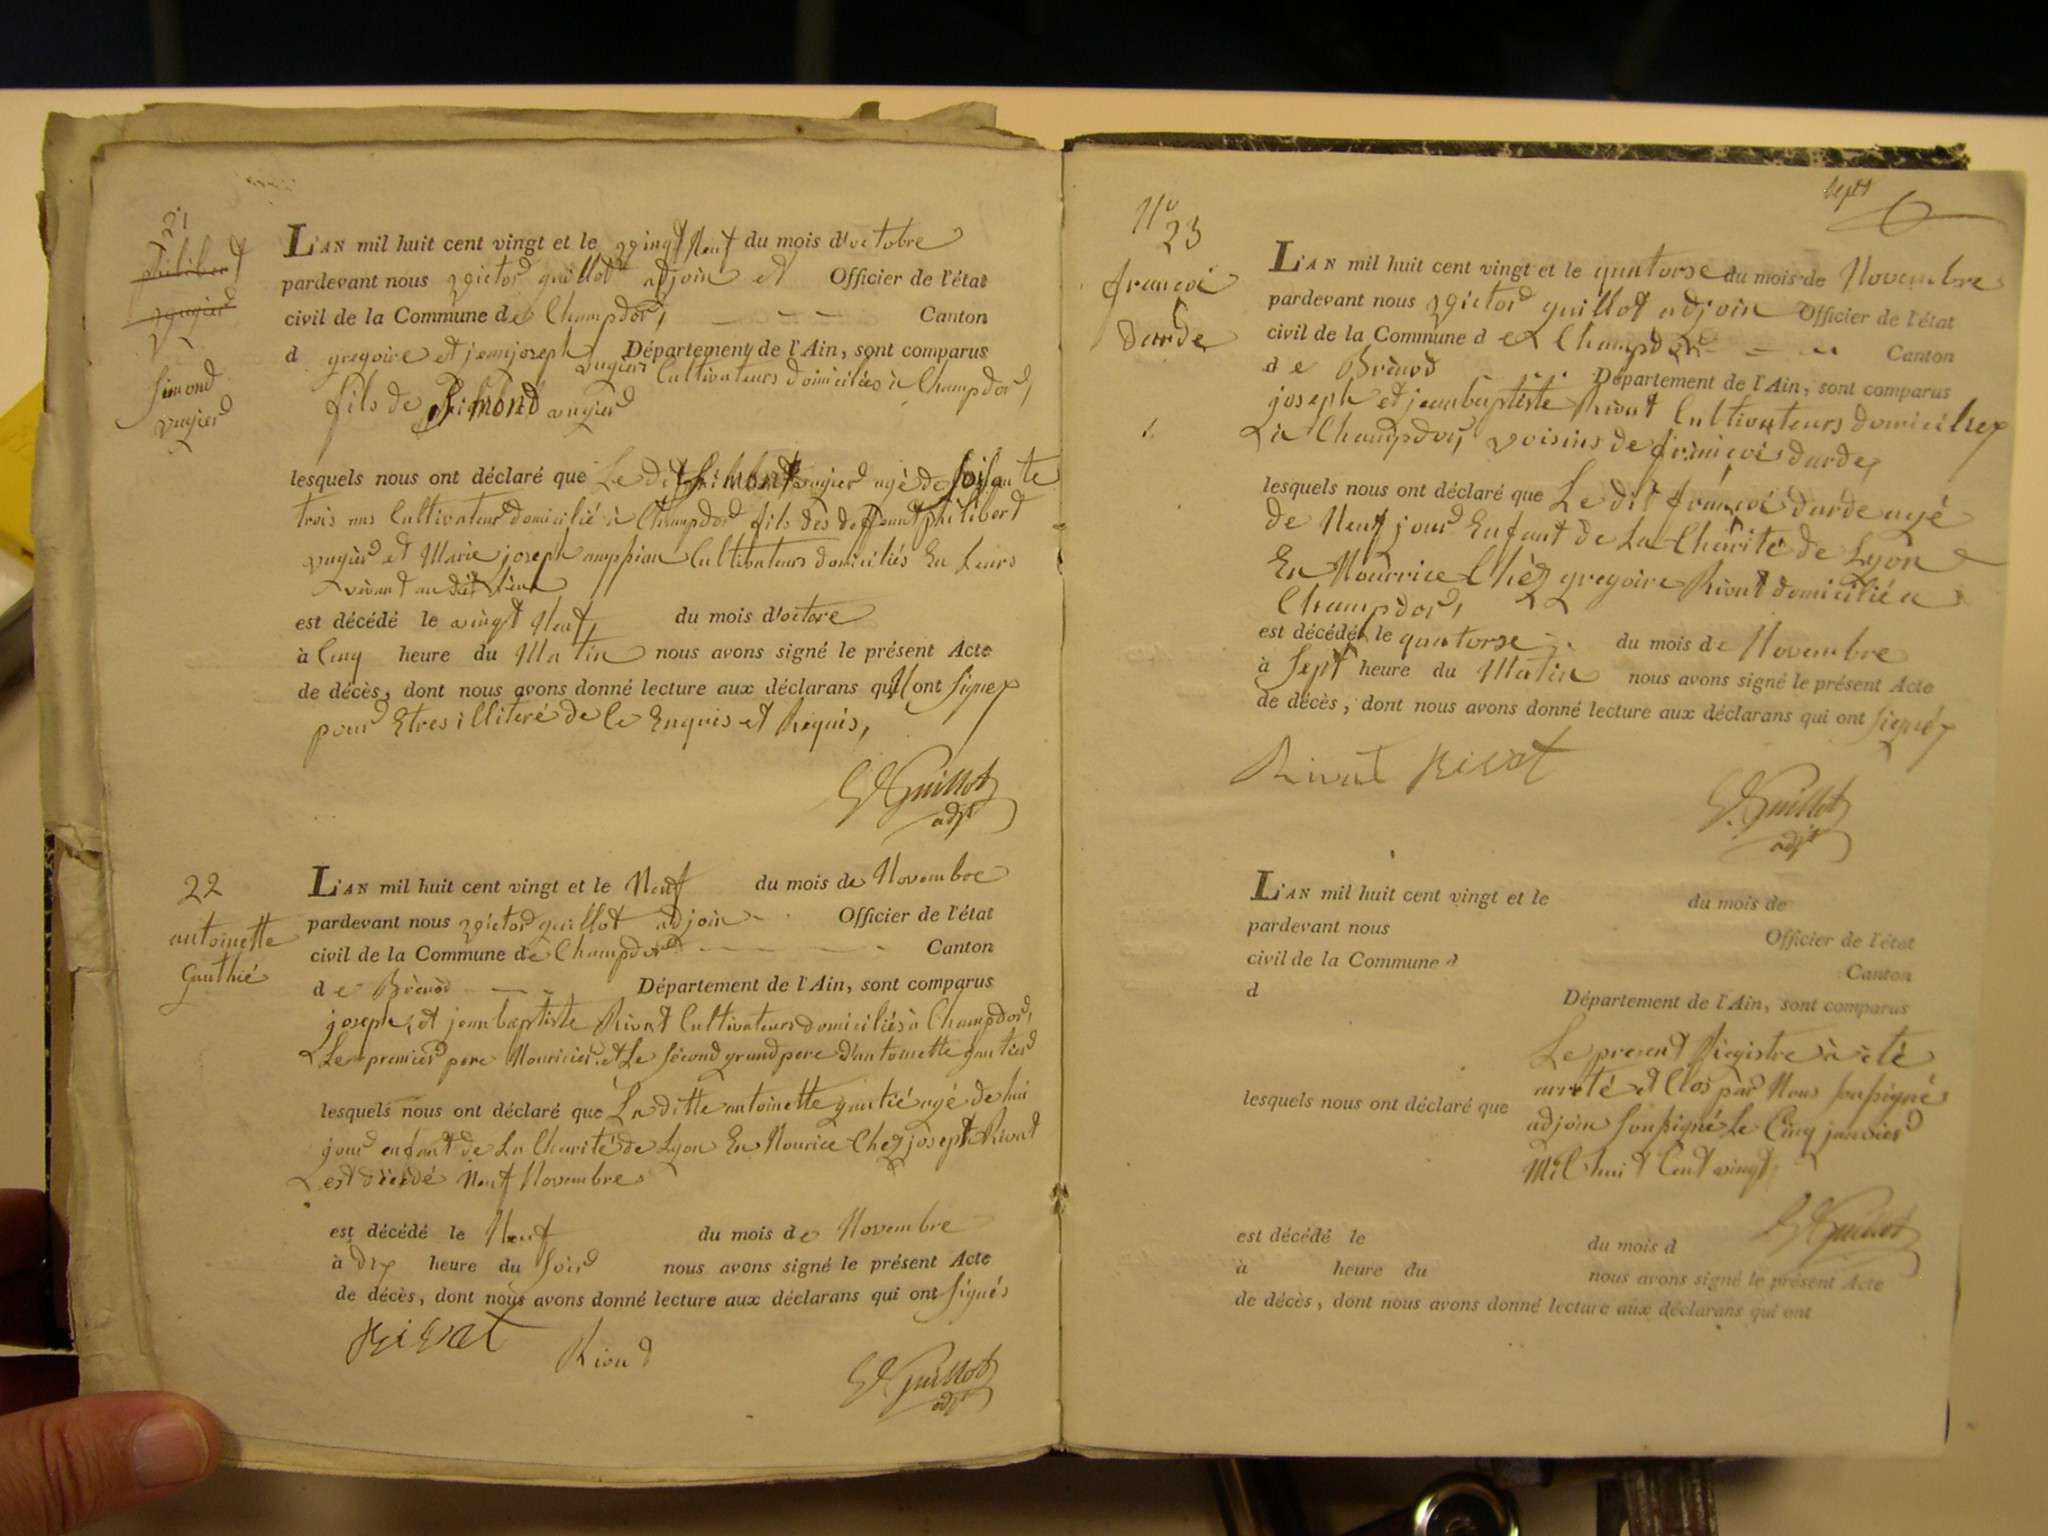 21
philibert
vugier
Simond
vugier
L'AN mil huit cent vingt et le vingt Neuf du mois d'octobre
pardevant nous victor guillot adjoin et Officier de l'état
civil de la Commune de Champdor, Canton
d gregoire et jean joseph vugier Département de l'Ain, sont comparus
Cultivateurs domiciliés à Champdor,
fils de Simond vugier
lesquels nous ont déclaré que Le dit Simond vugier agé de soisante
trois ans Cultivateur domicilié à Champdor fils des deffeunt philibert
vugier et Marie joseph Cultivateurs domiciliés En Leurs
vivant au dit lieu
est décédé le vingt Neuf, du mois d'octore
à Cinq heure du Matin nous avons signé le présent Acte
de décès, dont nous avons donné lecture aux déclarans qui ont Signez
pour Etres illiteré de ce Enquis et Requis,
Guillot
adjt
22
antoinette
Gauthié
L'AN mil huit cent vingt et le Neuf du mois de Novembre
pardevant nous victor guillot adjoin Officier de l'état
civil de la Commune de Champdor Canton
de Brénod Département de l'Ain, sont comparus
joseph et jean baptiste Rivat Cultivateurs domiciliés à Champdor,
Le premier pere Nouricier et Le second grand pere d'antoinette gautier
lesquels nous ont déclaré que La ditte antoinette gautié agé de hui
jour enfant de La Charité de Lyon En Nourice Chez joseph Rivat
est décédé Neuf Novembre
est décédé le Neuf du mois de Novembre
à dix heure du Soir nous avons signé le présent Acte
de décès, dont nous avons donné lecture aux déclarans qui ont Signés
Rivat Rivat
Guillot
adjt
sept
No
23
françoi
darde
L'AN mil huit cent vingt et le quatorse du mois de Novembre
pardevant nous victor guillot adjoin Officier de l'état
civil de la Commune d et Champdor Canton
de Brénod Département de l'Ain, sont comparus
joseph et jean baptiste Rivat Cultivateurs domiciliez
à Champdor, voisins de françoi darde,
lesquels nous ont déclaré que Le dit françoi darde agé
de Neuf jour Enfant de La Charité de Lyon
En Nourrice Chèz gregoire Rivat domicilié a
Champdor,
est décédé le quatorse du mois de Novembre
à Sept heure du Matin nous avons signé le présent Acte
de décès, dont nous avons donné lecture aux déclarans qui ont Signéz
Rivat Rivat
Guillot
adjt
L'AN mil huit cent vingt et le du mois de
pardevant nous Officier de l'état
civil de la Commune d Canton
d Département de l'Ain, sont comparus
Le present Registre à été
arreté et Clos par Nous soussigné
lesquels nous ont déclaré que
adjoin soussigné Le Cinq janvier
Mil huit Cent vingt
Guillot
est décédé le du mois d
à heure du nous avons signé le présent Acte
de décès, dont nous avons donné lecture aux déclarans qui ont